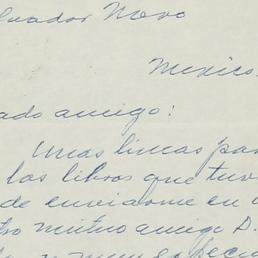 lvador Novo
Mexico.
ado amigo:
Unas lineas par
los libros que tuv
de enviarme en
tro mutuo amigo D.
y muy especia